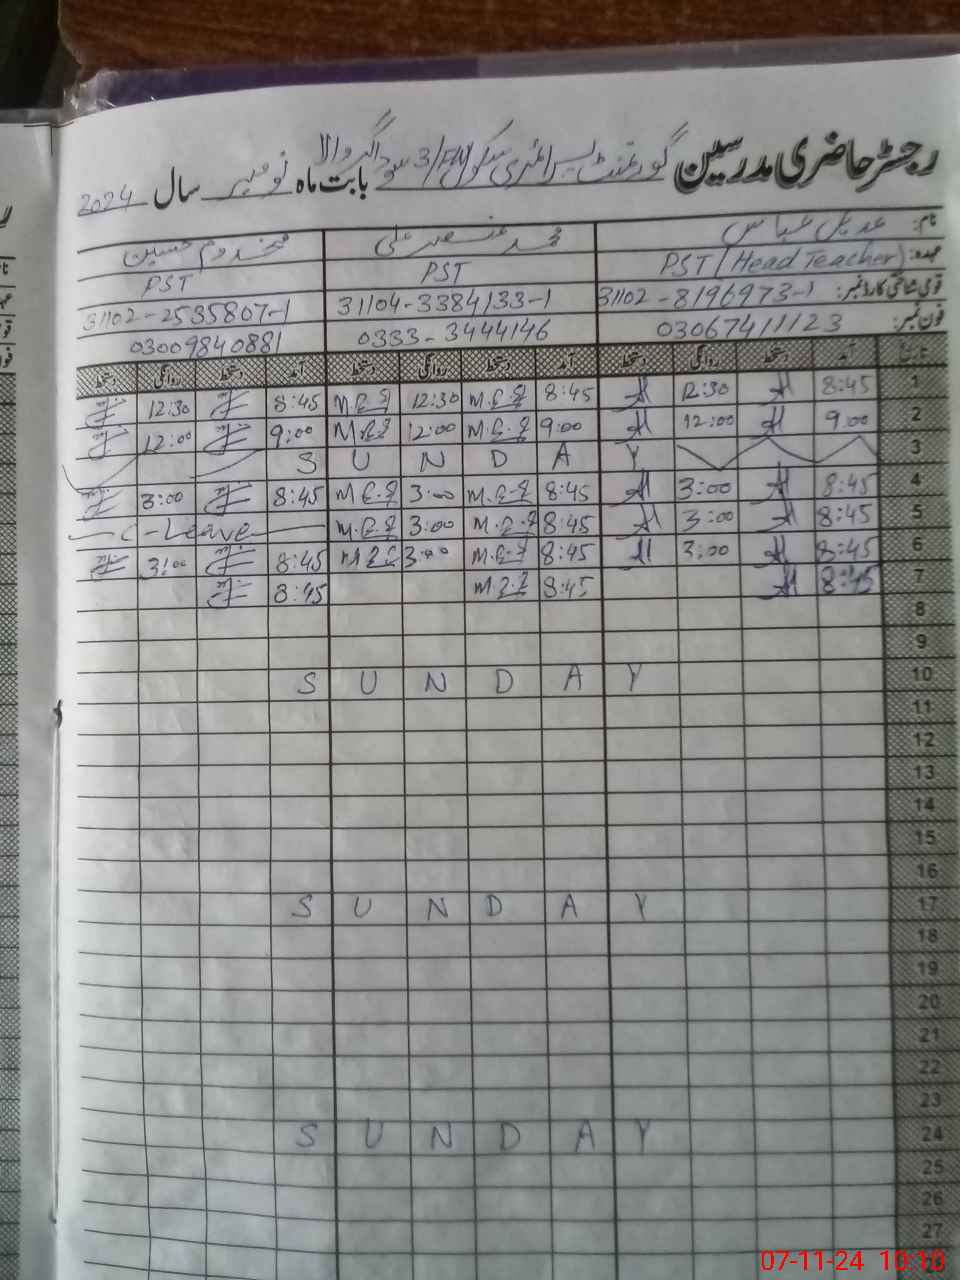 رجسٹر حاضری مدرسین گورنمنٹ پرائمری سکول 3/FW سوداگر والا بابت ماہ نومبر سال 2024
نام: عدیل عباس محمد منصر علی مخدوم حسین
عہدہ: PST (Head Teacher) PST PST
قومی شناختی کارڈ نمبر: 31102-8196973-1 31104-3384133-1 31102-2535807-1
فون نمبر: 03067411123 0333-3444146 03009840881
تاریخ آمد دستخط روانگی دستخط آمد دستخط روانگی دستخط آمد دستخط روانگی دستخط
1 8:45 12:30 8:45 12:30 8:45 12:30
2 9:00 12:00 9:00 12:00 9:00 12:00
3 S U N D A Y
4 8:45 3:00 8:45 3:00 8:45 3:00
5 8:45 3:00 8:45 3:00 C-Leave
6 8:45 3:00 8:45 3:00 8:45 3:00
7 8:45 8:45 8:45
8
9
10 S U N D A Y
11
12
13
14
15
16
17 S U N D A Y
18
19
20
21
22
23
24 S U N D A Y
25
26
27
07-11-24 10:10